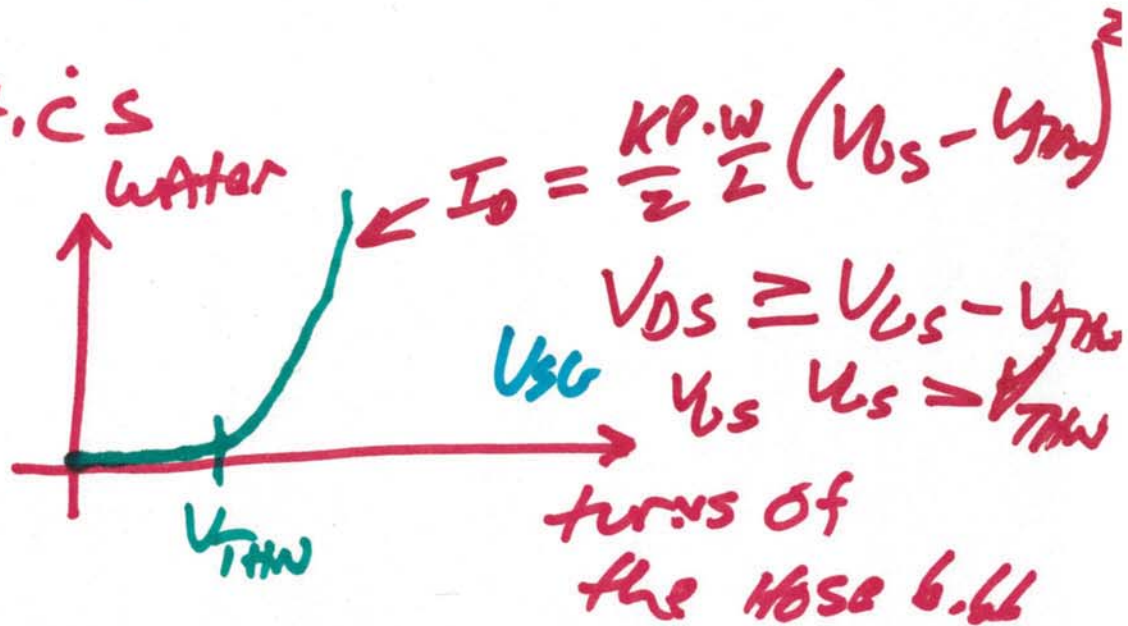 .ics
water
I_D = KP/2 · W/L (V_GS - V_THN)^2
V_DS ≥ V_GS - V_THN
V_SG
V_GS V_GS > V_THN
V_THN
turns of
the Hose bibb